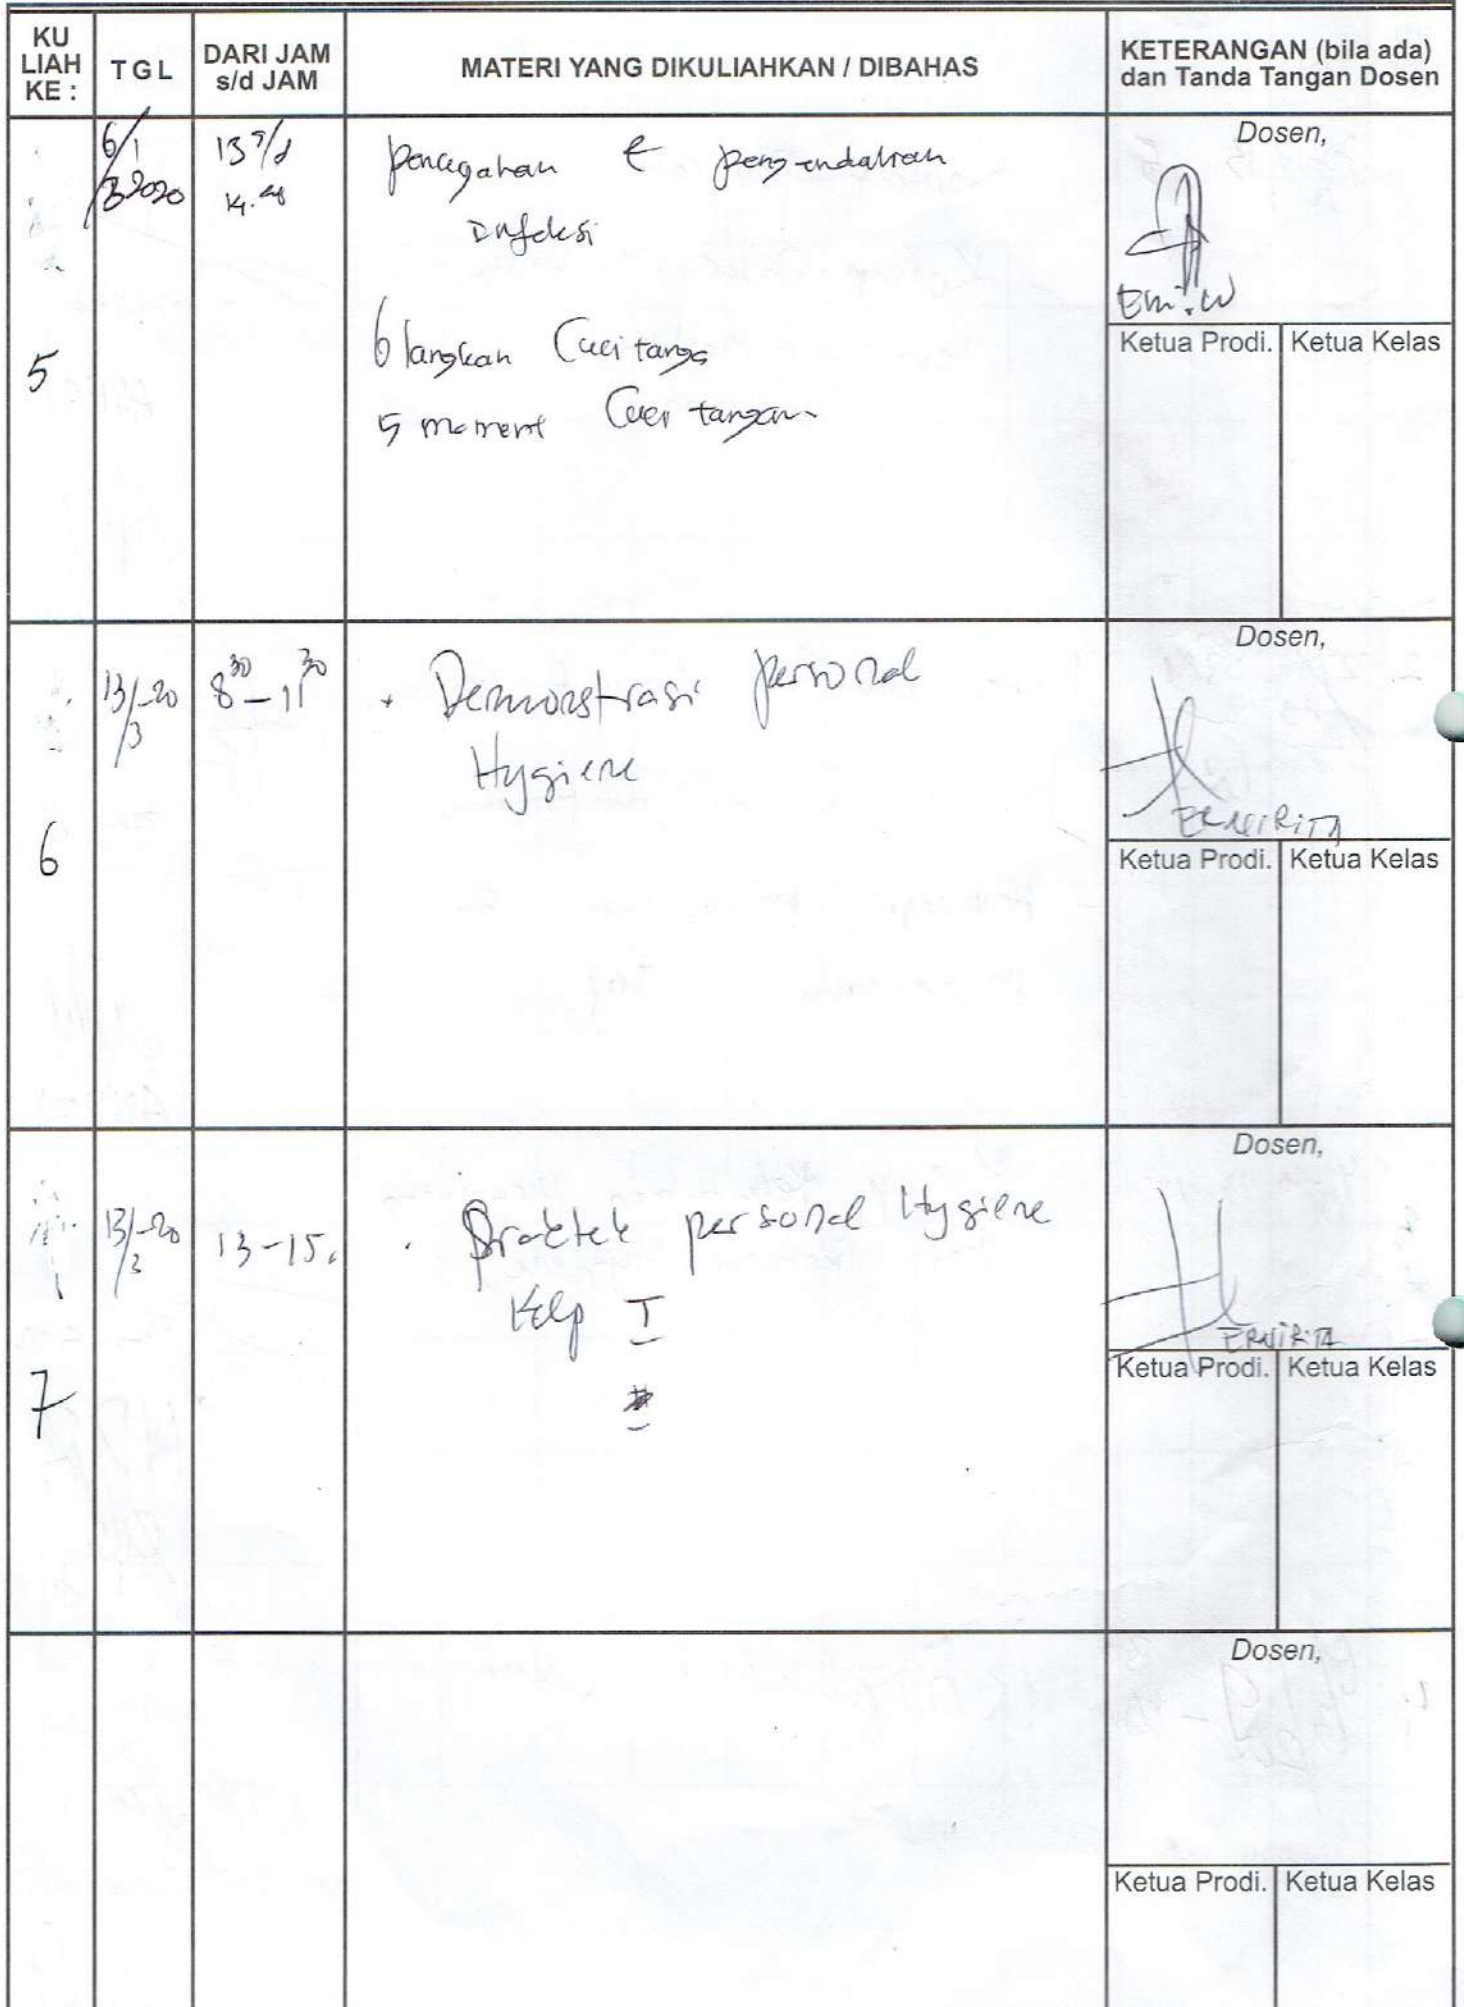 KU LIAH KE :
TGL
DARI JAM s/d JAM
MATERI YANG DIKULIAHKAN / DIBAHAS
KETERANGAN (bila ada) dan Tanda Tangan Dosen
5
6/1
3 2020
13 s/d
pencegahan & pengendalian
Infeksi
6 langkah Cuci tanga
5 moment Cuci tangan
Dosen,
Emi.W
Ketua Prodi.
Ketua Kelas
6
13/3-20
8 30 - 11 30
Demonstrasi personal
Hygiene
Dosen,
ERNIRITA
Ketua Prodi.
Ketua Kelas
7
13/3-20
13-15.
Praktek personal Hygiene
Kelp I
Dosen,
ERNIRITA
Ketua Prodi.
Ketua Kelas
Dosen,
Ketua Prodi.
Ketua Kelas